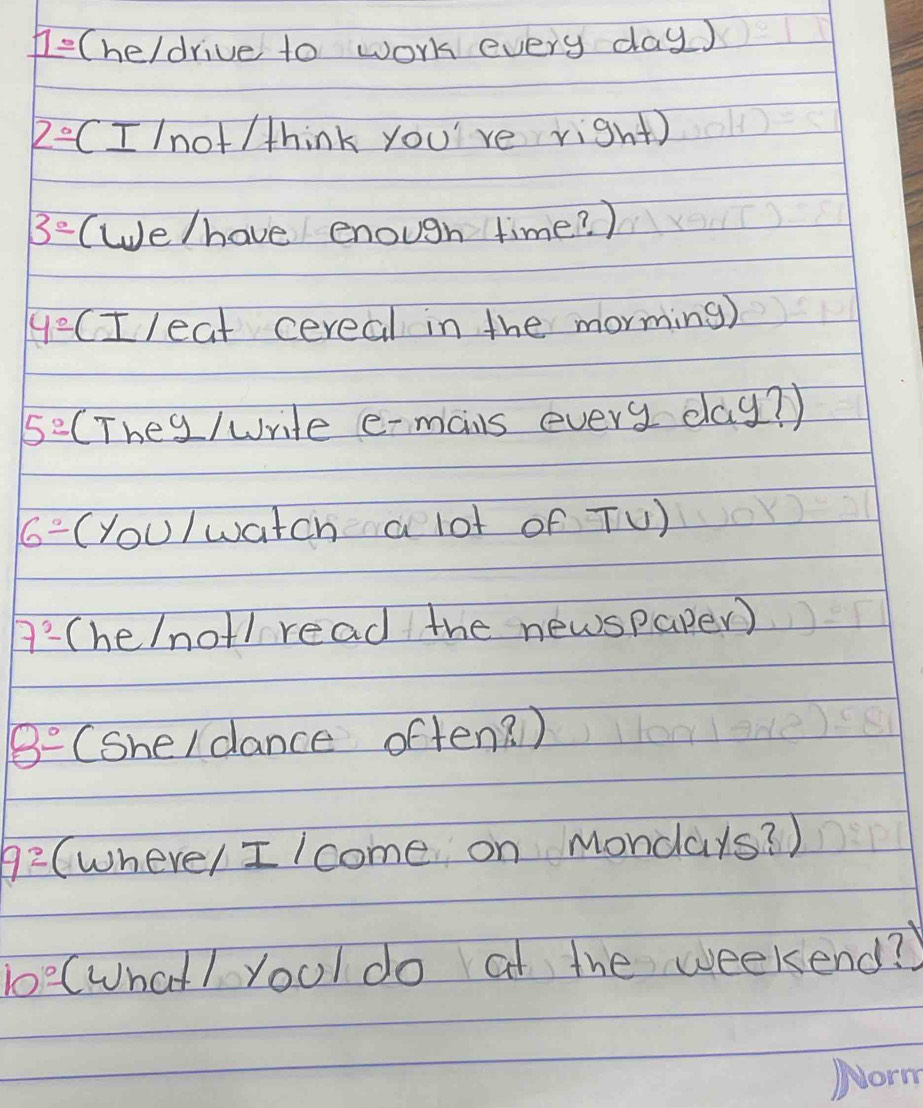 1º(he/drive to work every day)
2º(I/not/think you've right)
3º(We/have enough time?)
4º(I/eat cereal in the morming)
5º(They/write e-mails every day?)
6º(You/watch a lot of TU)
7º(he/not/read the newspaper)
8º(She/dance often?)
9º(where/I/come on Mondays?)
10º(What/you/do at the weekend?)
Norm